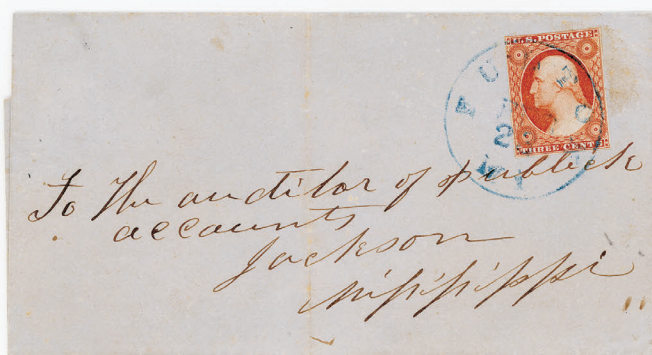 U.S. POSTAGE
THREE CENTS
To The auditor of publick
accounts
Jackson
Mississippi